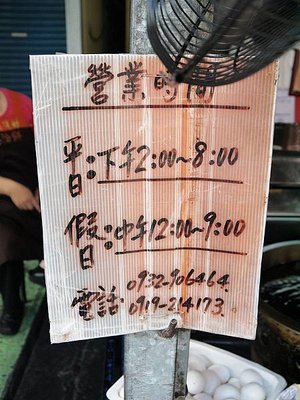 營業時間
平日:下午2:00~8:00
假日:中午12:00~9:00
電話 0932-906464
0919-214173